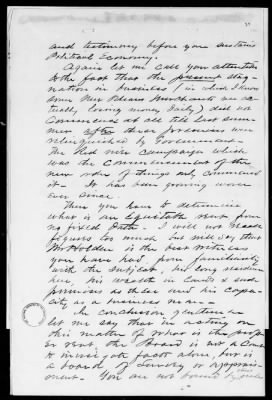 and testimony before you sustains
Political Economy.
Again let me call your attention
to the fact that the present stag-
nation in business (in which I know
some New Orleans Merchants are ac-
tually losing money daily) did not
commence at all till last sum-
mer after these premises were
relinquished by Government.
The Red river campaign which
was the commencement of the
new order of things only commenced
it. It has been growing worse
ever since.
Then you have to determine
what is an Equitable rent from
no fixed data. I will not
figures too much but will say that
Mr Holden is the best witness
you have had, from familiarity
with the subject, his long residence
here, his wealth in lands & such
premises as these and his capa-
city as a business man
In conclusion gentlemen
let me say that in acting on
this matter of which is the proper
rent, the Board is not a Court
to investigate facts alone, but is
a board of Survey or appraise-
ment. You are not bound by